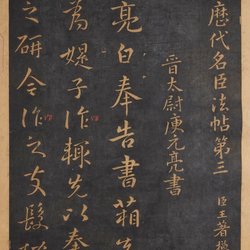 歷代名臣法帖第三
臣王著
晉太尉庾元亮書
亮白奉告書箱
為媞子作輒先以奉
之研令作之支髮